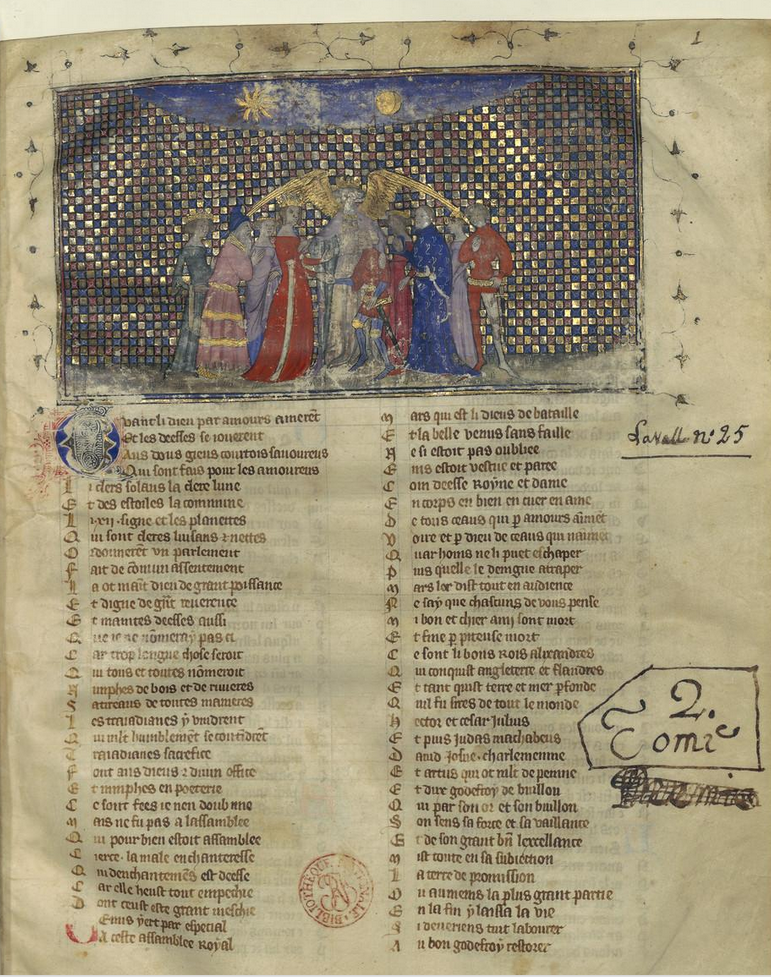 1
Quant li dieu par amours amerēt
Et les deesses se iouerent
Aus dous gieus courtois sauoureus
Qui sont fais pour les amoureus
Li clers solaus la clere lune
Et des estoiles la commune
Li .xii. signe et les planettes
Qui sont cleres luisans z nettes
Ordonnerēt vn parlement
Fait de cōmun assentement
La ot maīt dieu de grant poissance
Et digne de grāt reuerence
Et maintes deesses aussi
Que ie ne nōmeray pas ci
Car trop longue chose seroit
Qui tous et toutes nōmeroit
Nimphes de bois et de riuieres
Satireaus de toutes manieres
Les traiadianes y vindrent
Qui mlt humblemēt se contīdrēt
traiadianes sacrefice
Font aus dieus z diuin office
Et nimphes en poeterie
Ce sont fees ie nen doub mie
Mais ne fu pas a lassamblee
Qui pour bien estoit assamblee
Cierce. la male enchanteresse
Qui denchantemēs est deesse
Car elle heust tout empechie
Dont ceust este grant meschie
Venus y ert par especial
A ceste assamblee Royal
Mars qui est li dieus de bataille
Et la belle venus sans faille
Ne si estoit pas oubliee
Ens estoit vestue et paree
Com deesse Royne et dame
En corps en bien en cuer en ame
De tous ceaus qui p amours aīmēt
Voire et p dieu de ceaus qui
Quar homs ne li puet eschaper
Puis quelle le deingne atraper
Mars lor dist tout en audience
Ne say que chascuns de vous pense
Mi bon et chier ami sont mort
Et fine p piteuse mort
Ce sont li bons Rois alixandres
Qui conquist angleterre et flandres
Et tant quist terre et mer pfonde
Quil fu sires de tout le monde
Hector et cesar Julius
Et puis Judas machabeus
Dauid Josue. charlemenne
Et artus qui ot mlt de penne
Et dux godefroy de buillon
Qui par son or et son billon
Son sens sa force et sa vaillance
Et de son grant bn̄ lexcellance
Mist toute en sa subiection
La terre de promission
Ou au mens la plus grant partie
En la fin y laissa la vie
Si deueriens tuit labourer
Au bon godefroy restorer
Lavall. n° 25
2.
Tome
BIBLIOTHEQUE